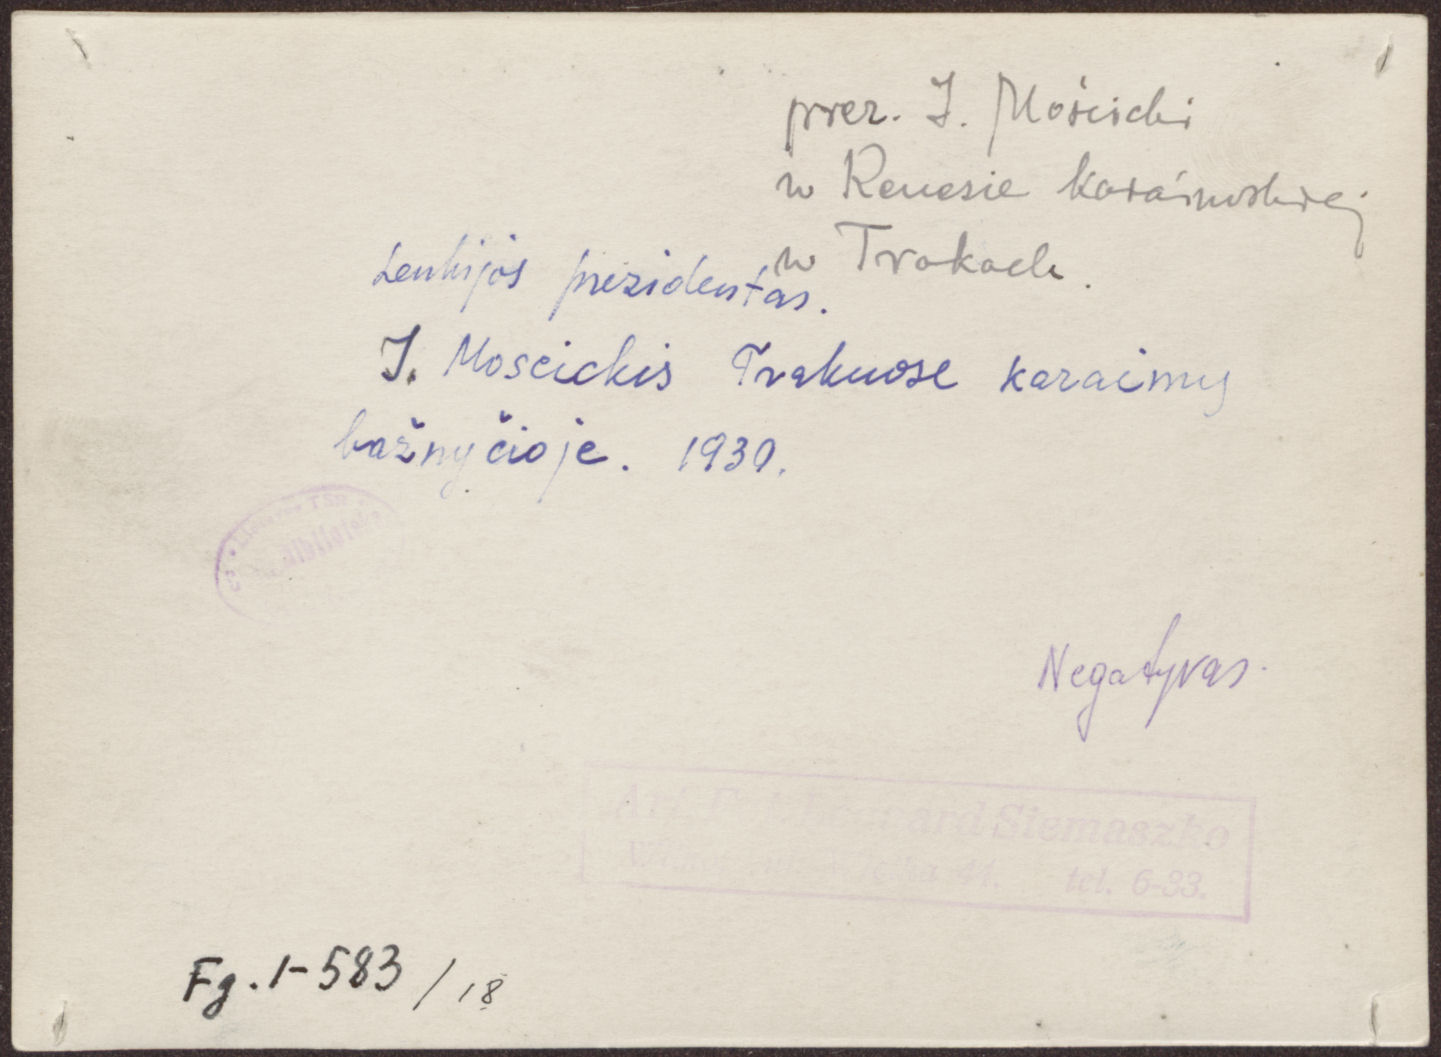 prez. I. Mościcki
w Kenesie karaimskiej
w Trokach.
Lenkijos prezidentas.
I. Moscickis Trakuose karaimų
bažnyčioje. 1930.
TSR
biblioteka
Negatyvas.
Art. Siemaszko
41. tel. 6-33.
Fg. 1-583/18